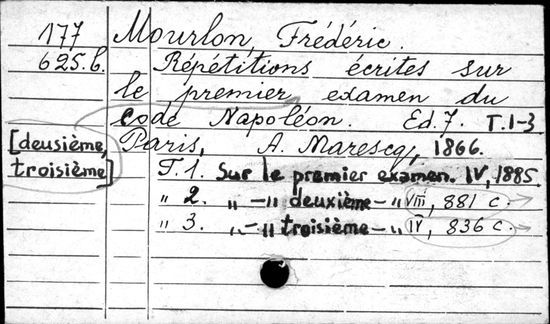 177 Mourlon, Frédéric.
625.b. Répétitions écrites sur
le premier examen du
code Napoléon. Ed.7. T.1-3
[deusième, troisième]
Paris, A. Marescq, 1866.
T.1. Sur le premier examen. IV, 1885.
" 2. " —" deuxième —" VIII, 881 c.
" 3. " —" troisième —" IV, 836 c.